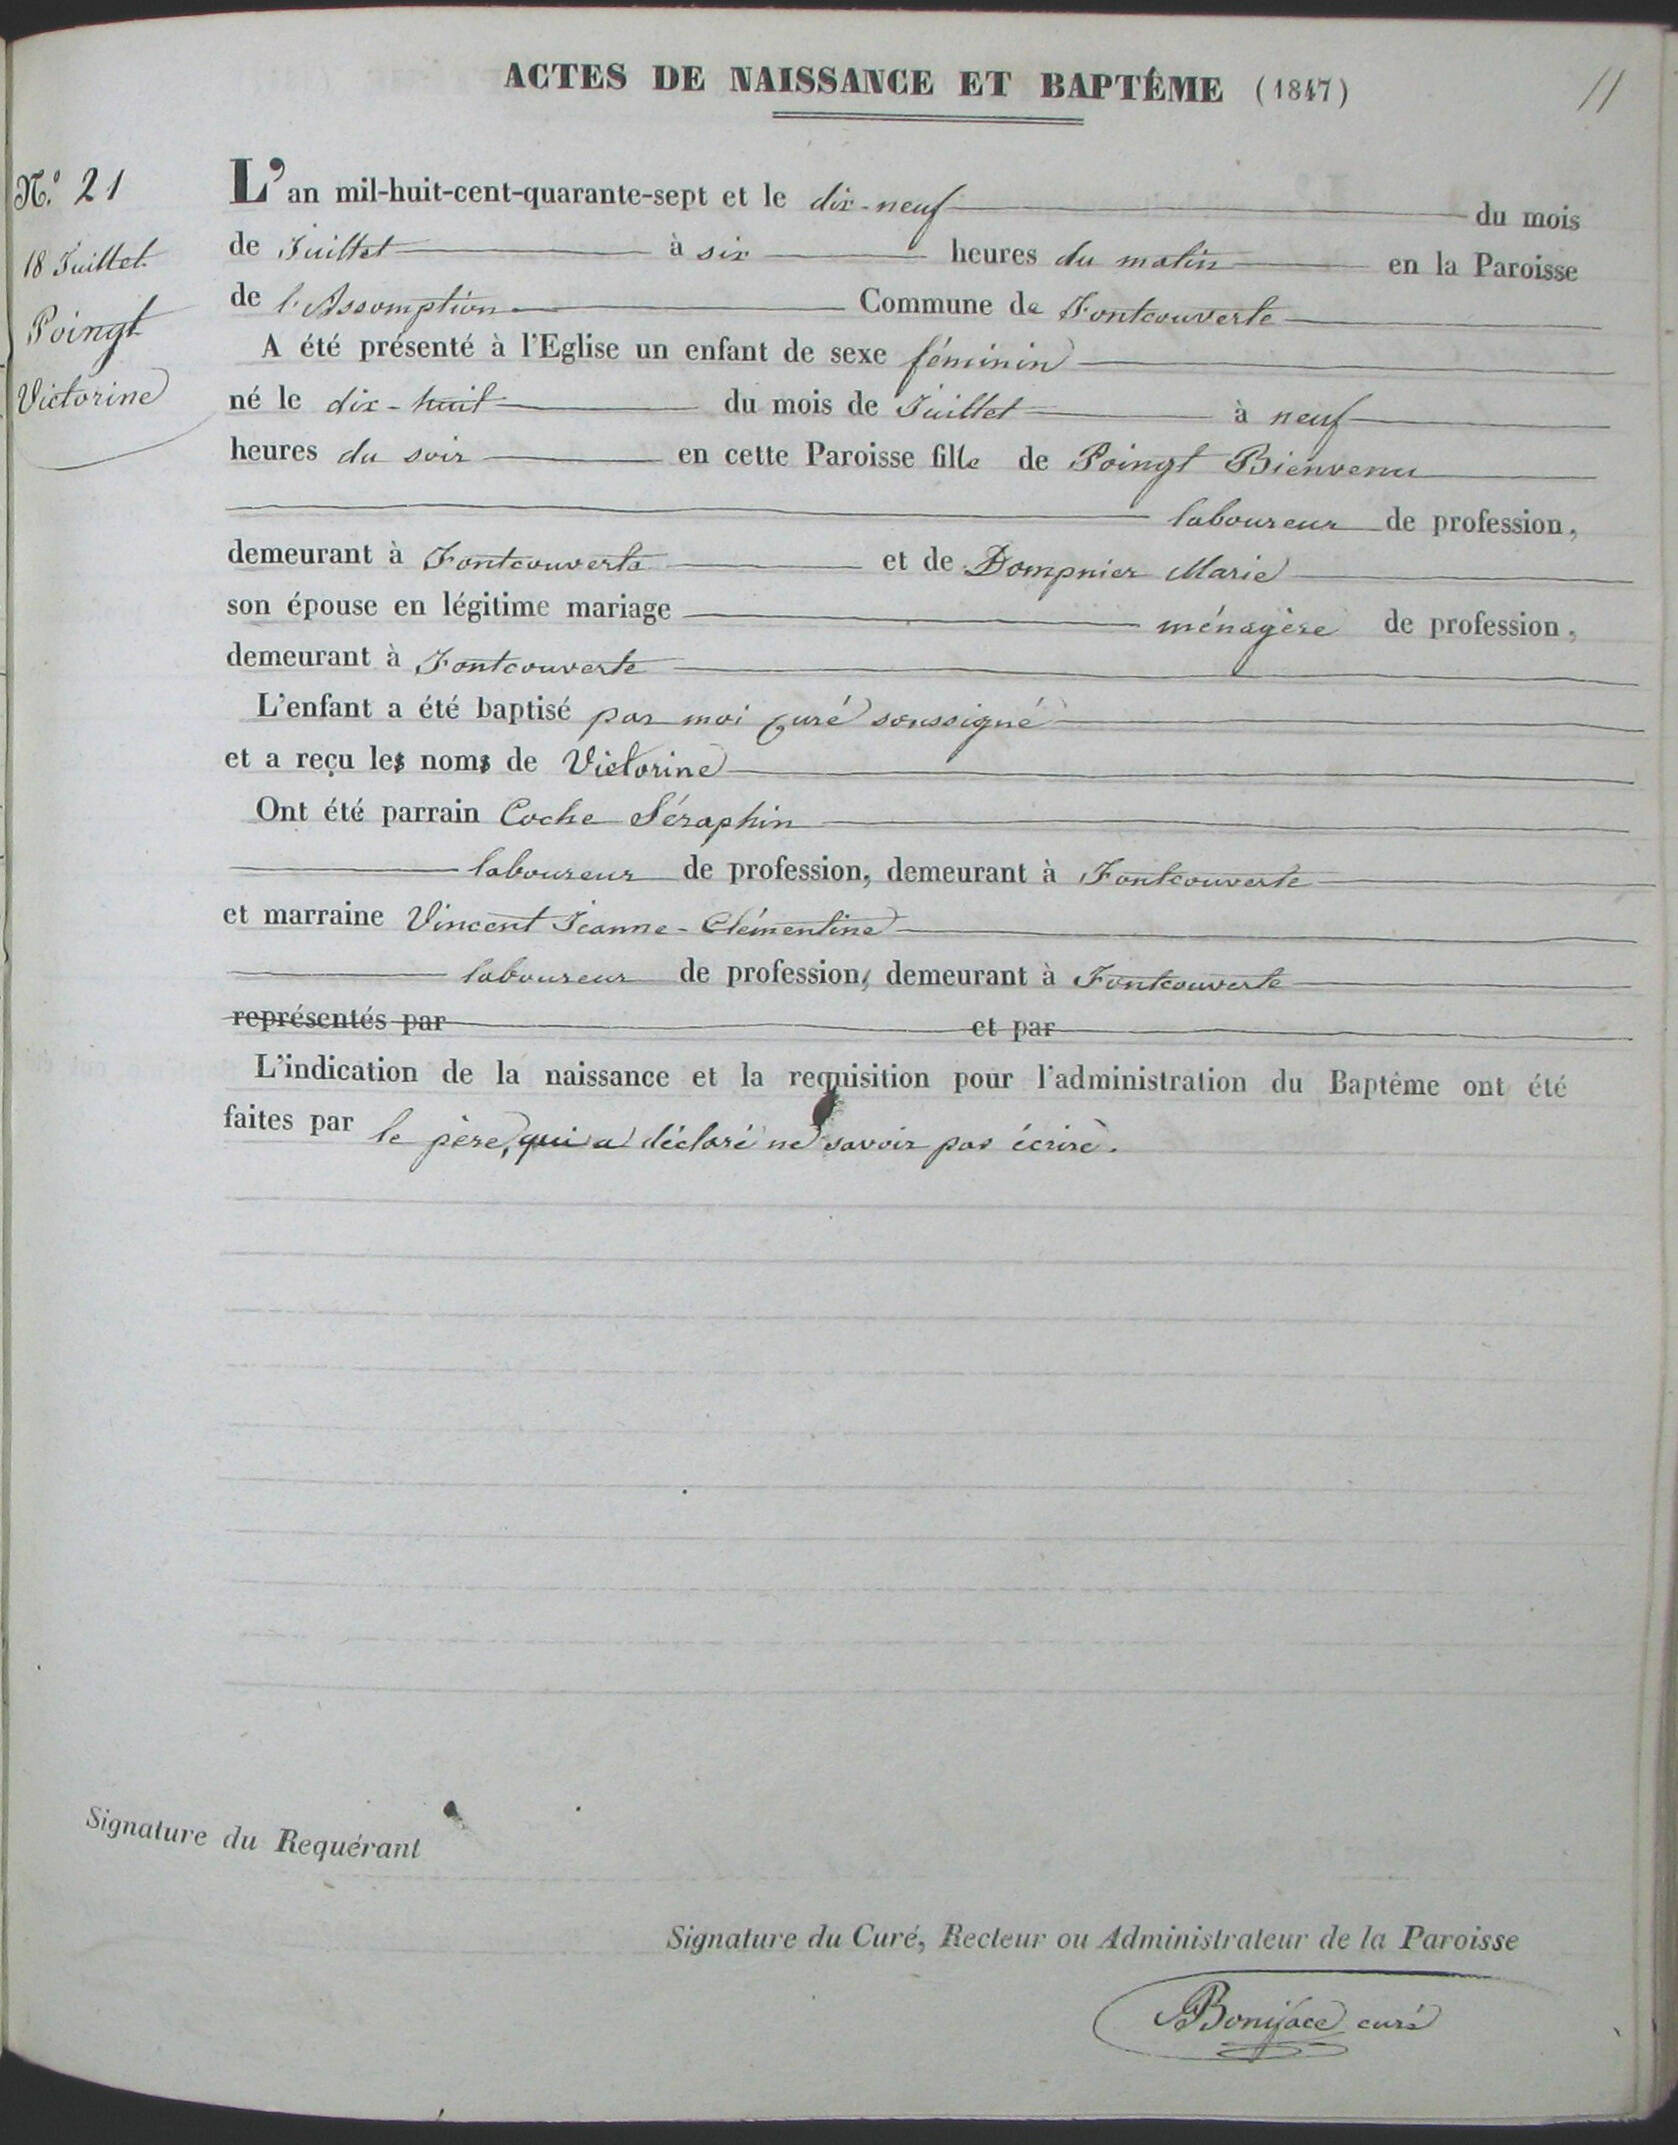 ACTES DE NAISSANCE ET BAPTÊME (1847)
11
N.º 21
18 Juillet.
Poingt
Victorine
L'an mil-huit-cent-quarante-sept et le dix-neuf du mois
de Juillet à six heures du matin en la Paroisse
de l'Assomption Commune de Fontcouverte
A été présenté à l'Eglise un enfant de sexe féminin
né le dix-huit du mois de Juillet à neuf
heures du soir en cette Paroisse fille de Poingt Bienvenu
laboureur de profession,
demeurant à Fontcouverte et de Dompnier Marie
son épouse en légitime mariage ménagère de profession,
demeurant à Fontcouverte
L'enfant a été baptisé par moi curé soussigné
et a reçu les noms de Victorine
Ont été parrain Coche Séraphin
laboureur de profession, demeurant à Fontcouverte
et marraine Vincent Jeanne-Clémentine
laboureur de profession, demeurant à Fontcouverte
représentés par et par
L'indication de la naissance et la requisition pour l'administration du Baptême ont été
faites par le père, qui a déclaré ne savoir pas écrire.
Signature du Requérant
Signature du Curé, Recteur ou Administrateur de la Paroisse
Boniface curé